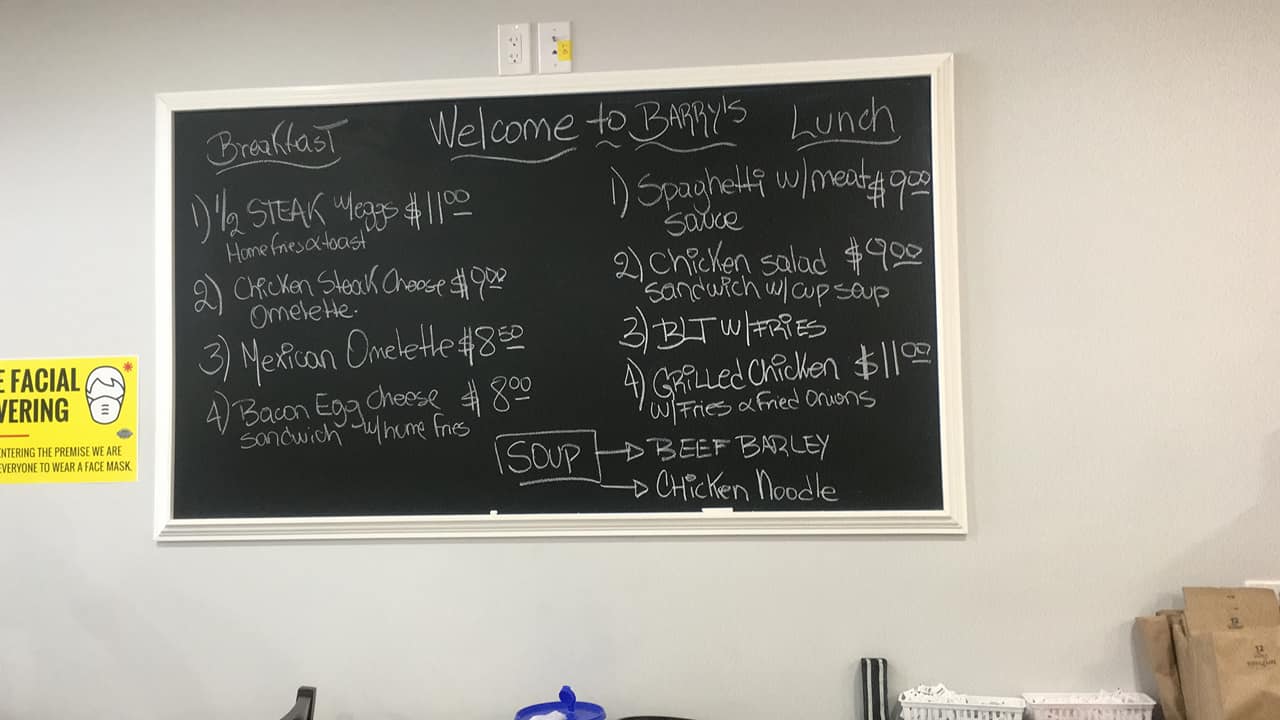 Welcome to BARRY'S
Breakfast
1) 1/2 STEAK w/eggs $11.00
Home fries & toast
2) Chicken Steak Cheese $9.00
Omelette.
3) Mexican Omelette $8.50
4) Bacon Egg Cheese $8.00
sandwich w/home fries
Lunch
1) Spaghetti w/meat $9.00
sauce
2) Chicken salad $9.00
sandwich w/cup soup
3) BLT W/FRIES
4) GRiLLed Chicken $11.00
w/Fries & Fried Onions
SOUP
BEEF BARLEY
CHicKen Noodle
E FACIAL
VERING
NTERING THE PREMISE WE ARE
EVERYONE TO WEAR A FACE MASK.
12
12